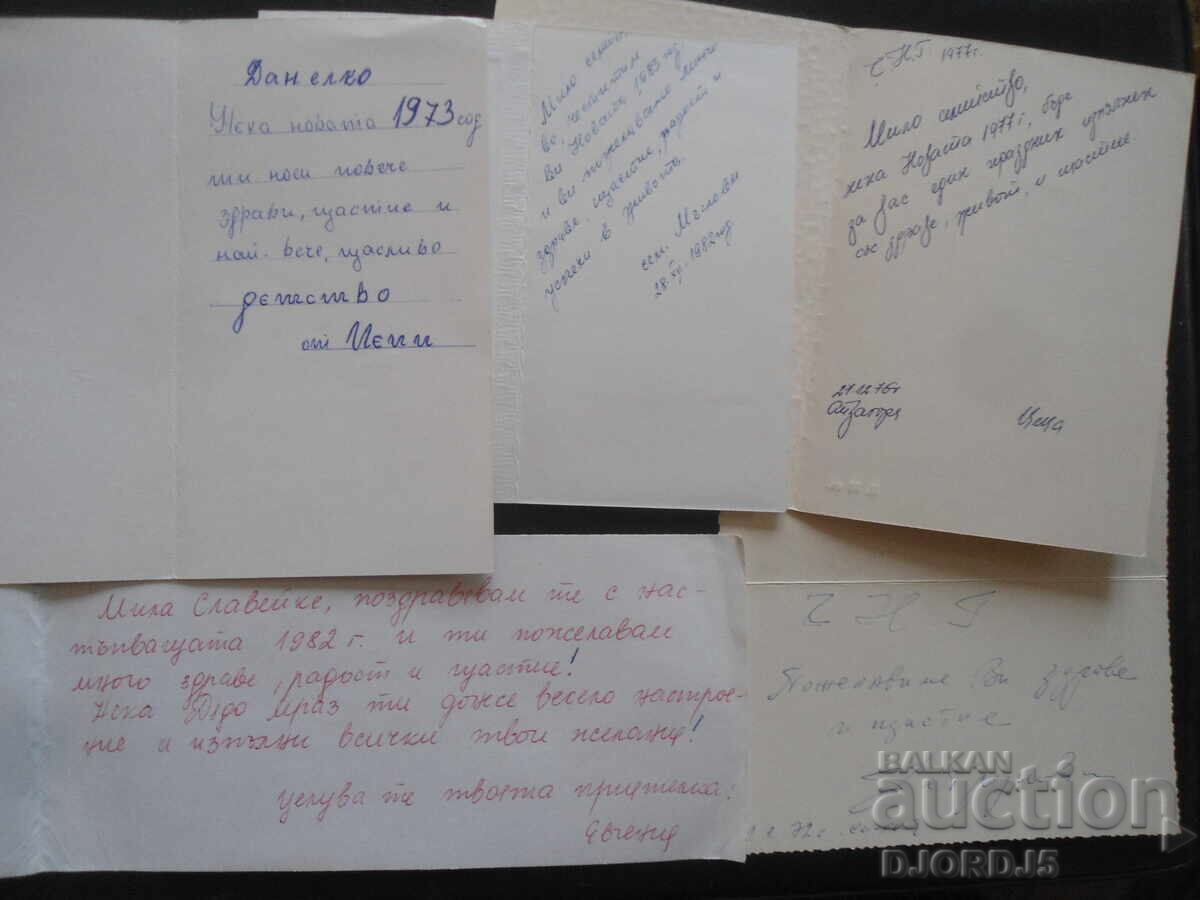 Данелко
Нека новата 1973 год
ти носи повече
здраве, щастие и
най-вече, щасливо
детство
от Цепи
Мило семейст
во, честитим
Ви Новата 1983 год
и ви пожелаваме много
здраве, щастие, радост и
успехи в живота.
сем.
28.XII.1982год
ЧНГ 1977г.
Мило семейство,
нека Новата 1977г. бъде
за Вас един празник изпълнен
със здраве, живот, и щастие.
27.12.76г
Ст.Загора
Цеца
Мила Славейке, поздравявам те с нас-
тъпващата 1982 г. и ти пожелавам
много здраве, радост и щастие!
Нека Дядо мраз ти донесе весело настрое-
ние и изпълни всички твои желания!
целува те твоята приятелка:
Евгения
Ч Н Г
Пожелаваме Ви здраве
и щастие
72г.
BALKAN
auction
DJORDJ5